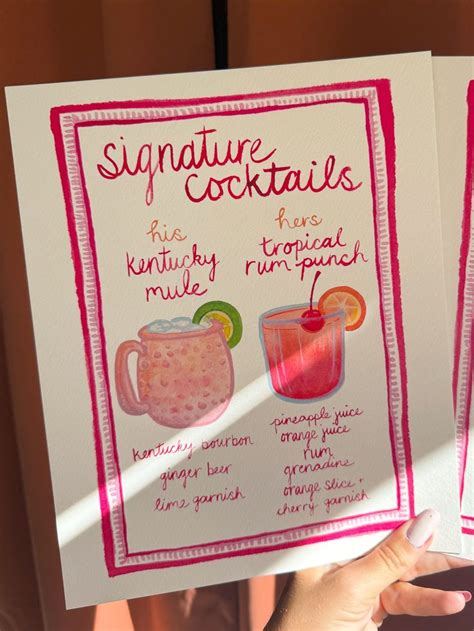 signature
cocktails
his
kentucky
mule
hers
tropical
rum punch
kentucky bourbon
ginger beer
lime garnish
pineapple juice
orange juice
rum
grenadine
orange slice +
cherry garnish